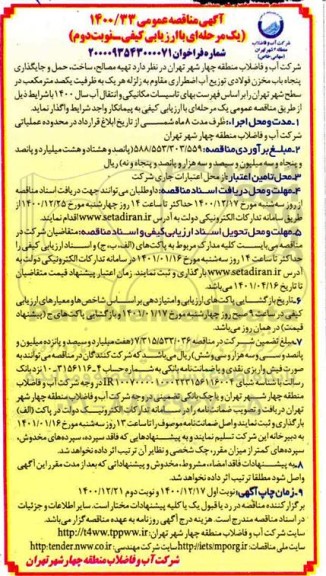 آگهی مناقصه عمومی ۱۴۰۰/۳۳
(یک مرحله‌ای با ارزیابی کیفی-نوبت دوم)
شماره فراخوان ۲۰۰۰۰۹۳۵۴۳۰۰۰۰۷۱
شرکت آب و فاضلاب
منطقه ۴ شهر تهران
(سهامی خاص)
شرکت آب و فاضلاب منطقه چهار شهر تهران در نظر دارد تهیه مصالح، ساخت، حمل و جایگذاری
پنجاه باب مخزن فولادی توزیع آب اضطراری مقاوم به زلزله هر یک به ظرفیت یکصد متر مکعب در
سطح شهر تهران را بر اساس فهرست بهای تاسیسات مکانیکی و انتقال آب سال ۱۴۰۰ با شرایط ذیل
از طریق مناقصه عمومی یک مرحله‌ای با ارزیابی کیفی به پیمانکار واجد شرایط واگذار نماید.
۱-مدت و محل اجرا: ظرف مدت ۸ ماه شمسی از تاریخ ابلاغ قرارداد در محدوده عملیاتی
شرکت آب و فاضلاب منطقه چهار شهر تهران
۲-مبلغ برآوردی مناقصه: ۵۸۸/۵۵۳/۳۰۳/۵۵۹ (پانصد و هشتاد و هشت میلیارد و پانصد
و پنجاه و سه میلیون و سیصد و سه هزار و پانصد و پنجاه و نه) ریال
۳-محل تامین اعتبار: از محل اعتبارات جاری شرکت
۴-مهلت و محل دریافت اسناد مناقصه: داوطلبان می توانند جهت دریافت اسناد مناقصه
از روز سه شنبه مورخ ۱۴۰۰/۱۲/۱۷ حداکثر تا ساعت ۱۴ روز چهارشنبه مورخ ۱۴۰۰/۱۲/۲۵ از
طریق سامانه تدارکات الکترونیکی دولت به آدرس www.setadiran.ir اقدام نمایند.
۵-مهلت و محل تحویل اسناد ارزیابی کیفی و اسناد مناقصه: متقاضیان شرکت در
مناقصه می بایست کلیه مدارک مربوط به پاکت های (الف، ب، ج) و اسناد ارزیابی کیفی را
حداکثر تا ساعت ۱۴ روز سه شنبه مورخ ۱۴۰۱/۰۱/۱۶ در سامانه تدارکات الکترونیکی دولت به
آدرس www.setadiran.ir بارگذاری و ثبت نمایند. زمان اعتبار پیشنهاد قیمت متقاضیان
تا تاریخ ۱۴۰۱/۰۴/۱۶ می باشد.
۶-تاریخ بازگشایی پاکت های ارزیابی و امتیازدهی بر اساس شاخص ها و معیارهای ارزیابی
کیفی در ساعت ۹ صبح روز چهارشنبه مورخ ۱۴۰۱/۰۱/۱۷ و بازگشایی پاکت های ج (پیشنهاد
قیمت) در همان روز می باشد.
۷-مبلغ تضمین شرکت در مناقصه ۷/۳۱۵/۵۳۳/۰۳۶ (هفت میلیارد و سیصد و پانزده میلیون و
پانصد و سی و سه هزار و سی و شش) ریال می باشد که شرکت کنندگان در مناقصه می توانند به
صورت فیش واریز نقدی و یا ضمانت نامه بانکی به شماره حساب
رسالت با شناسه شبای
منطقه چهار شهر تهران و یا چک بانکی تضمینی در وجه شرکت آب و فاضلاب منطقه چهار شهر
تهران دریافت و تصویب ضمانت نامه را در سامانه تدارکات الکترونیک دولت در پاکت (الف)
بارگذاری و ثبت نمایند و اصل ضمانت نامه موصوف را تا ساعت ۱۳ روز سه شنبه مورخ ۱۴۰۱/۰۱/۱۶
به دبیرخانه این شرکت تسلیم نمایند و به پیشنهادهایی که فاقد سپرده، سپرده های مخدوش،
سپرده های کمتر از میزان مقرر، چک شخصی و نظایر آن ترتیب اثر داده نخواهد شد.
۸-به پیشنهادات فاقد امضاء، مشروط، مخدوش و پیشنهاداتی که بعد از مدت مقرر این آگهی
واصل شود مطلقا ترتیب اثر داده نخواهد شد.
۹-زمان چاپ آگهی: نوبت اول ۱۴۰۰/۱۲/۱۷ و نوبت دوم ۱۴۰۰/۱۲/۲۱
برگزار کننده مناقصه در رد یا قبول یک یا کلیه پیشنهادات مختار است. سایر اطلاعات و جزئیات
در اسناد مناقصه مندرج است. هزینه درج آگهی روزنامه به عهده مناقصه گزار می باشد.
سایت شرکت آب و فاضلاب منطقه چهار شهر تهران http://t4ww.tpww.ir
سایت ملی مناقصات: http://iets/mporg.ir سایت شرکت مهندسی: http:tender.nww.co.ir
شرکت آب و فاضلاب منطقه چهار شهر تهران